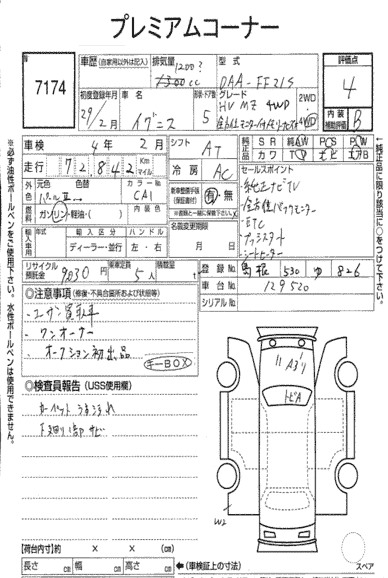 プレミアムコーナー
7174
車歴 (自家用以外は記入)
排気量 1200? 1300cc
型式 DAA-FF21S
評価点 4
初度登録年月 29年2月
車名 イグニス
形状・ドア数 5
グレード HV MZ 4WD
2WD・4WD
内装補助評価 B
車検 4年2月
シフト AT
純正品 純正 AW PS PW カワ TV ナビ エアB
走行 72,842 Km マイル
冷房 AC
セールスポイント
純正ナビTV
全方位バックモニター
ETC
プッシュスタート
シートヒーター
外色 元色 パール 色替
カラーNo. CA1
新車整備手帳(保証書付) 有・無
※書類と一緒に保管下さい。
燃料 ガソリン・軽油・( )
内装色
名義変更期限 月 日
輸入車用 輸入区分 ハンドル
ディーラー・並行 左・右
リサイクル預託金 9030円
乗車定員 5人
積載量
登録No. 島根 530 ゆ 826
車台No. 129520
シリアルNo.
◎注意事項 (修復・不具合箇所および状態等)
・ユーザー買取車
・ワンオーナー
・オークション初出品
キーBOX
◎検査員報告 (USS使用欄)
カーペット うす汚れ
下廻り 小部 サビ
A3
トビA
W2
【荷台内寸】約 × × (cm)
長さ cm 幅 cm 高さ cm
←(車検証上の寸法)
スペア
※必ず油性ボールペンをご使用下さい。水性ボールペンは使用できません。
←純正品に限り該当に○をつけて下さい。